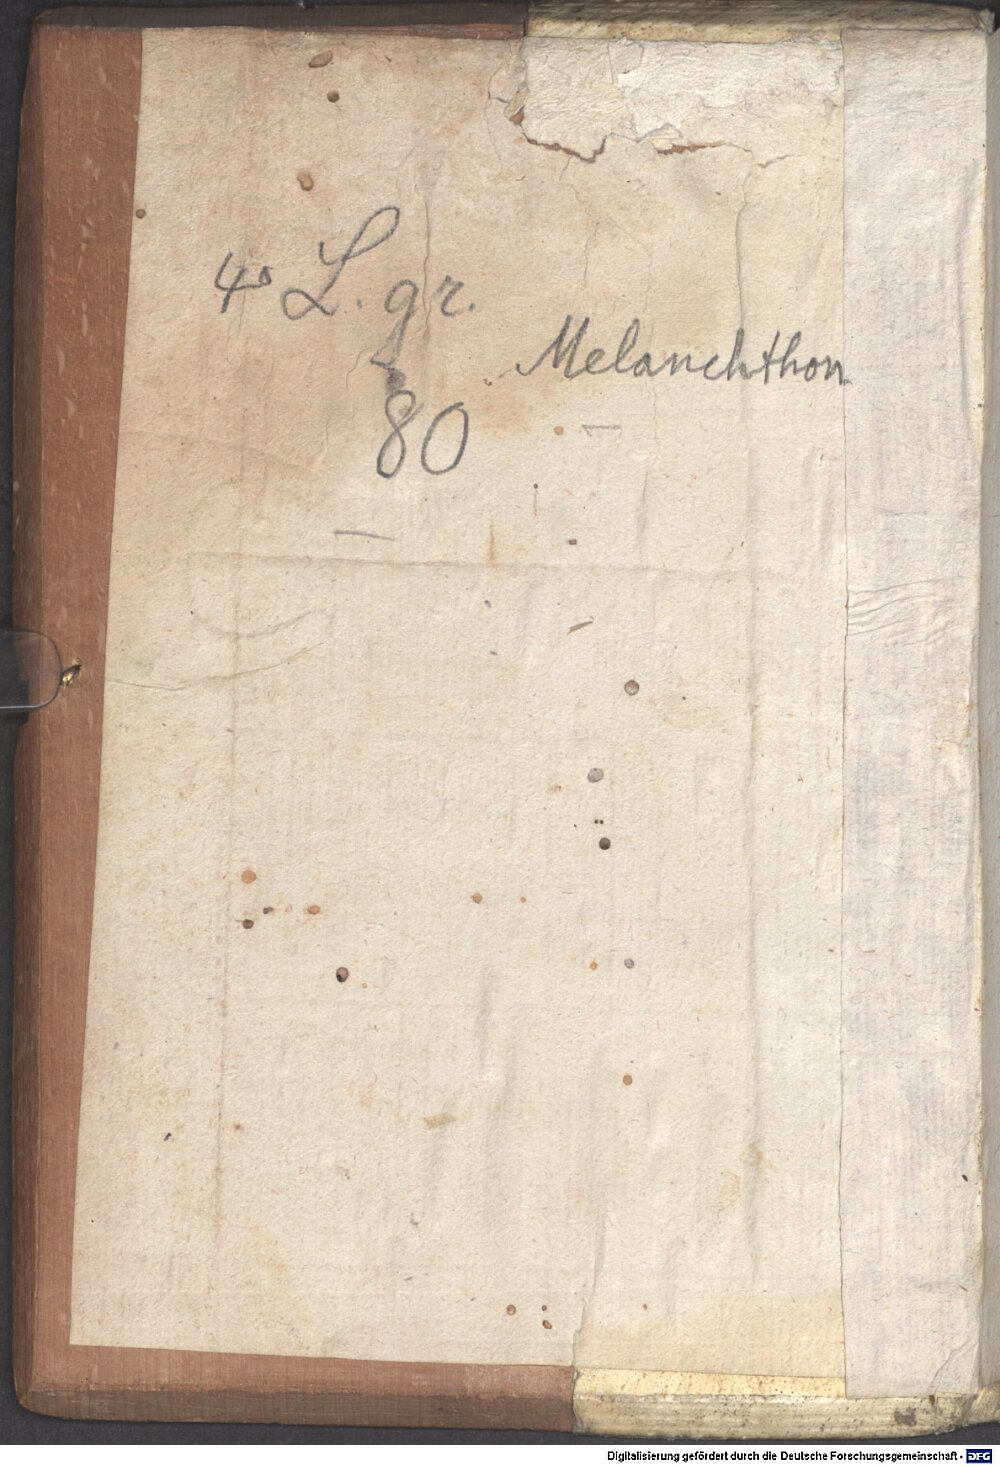 4° L. gr.
Melanchthon
80
Digitalisierung gefördert durch die Deutsche Forschungsgemeinschaft - DFG